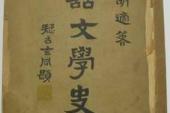 胡適著
話文學史
疑古玄同題